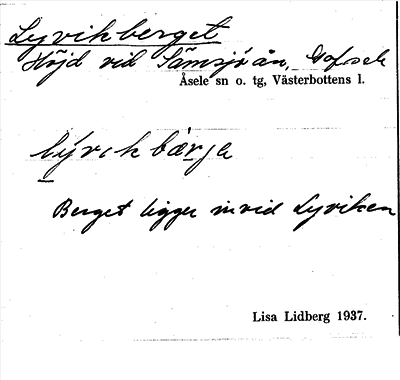 Lyvikberget
Höjd vid Tåmsjöån, Gafsele
Åsele sn o. tg, Västerbottens l.
lývikbærje
Berget ligger invid Lyviken
Lisa Lidberg 1937.